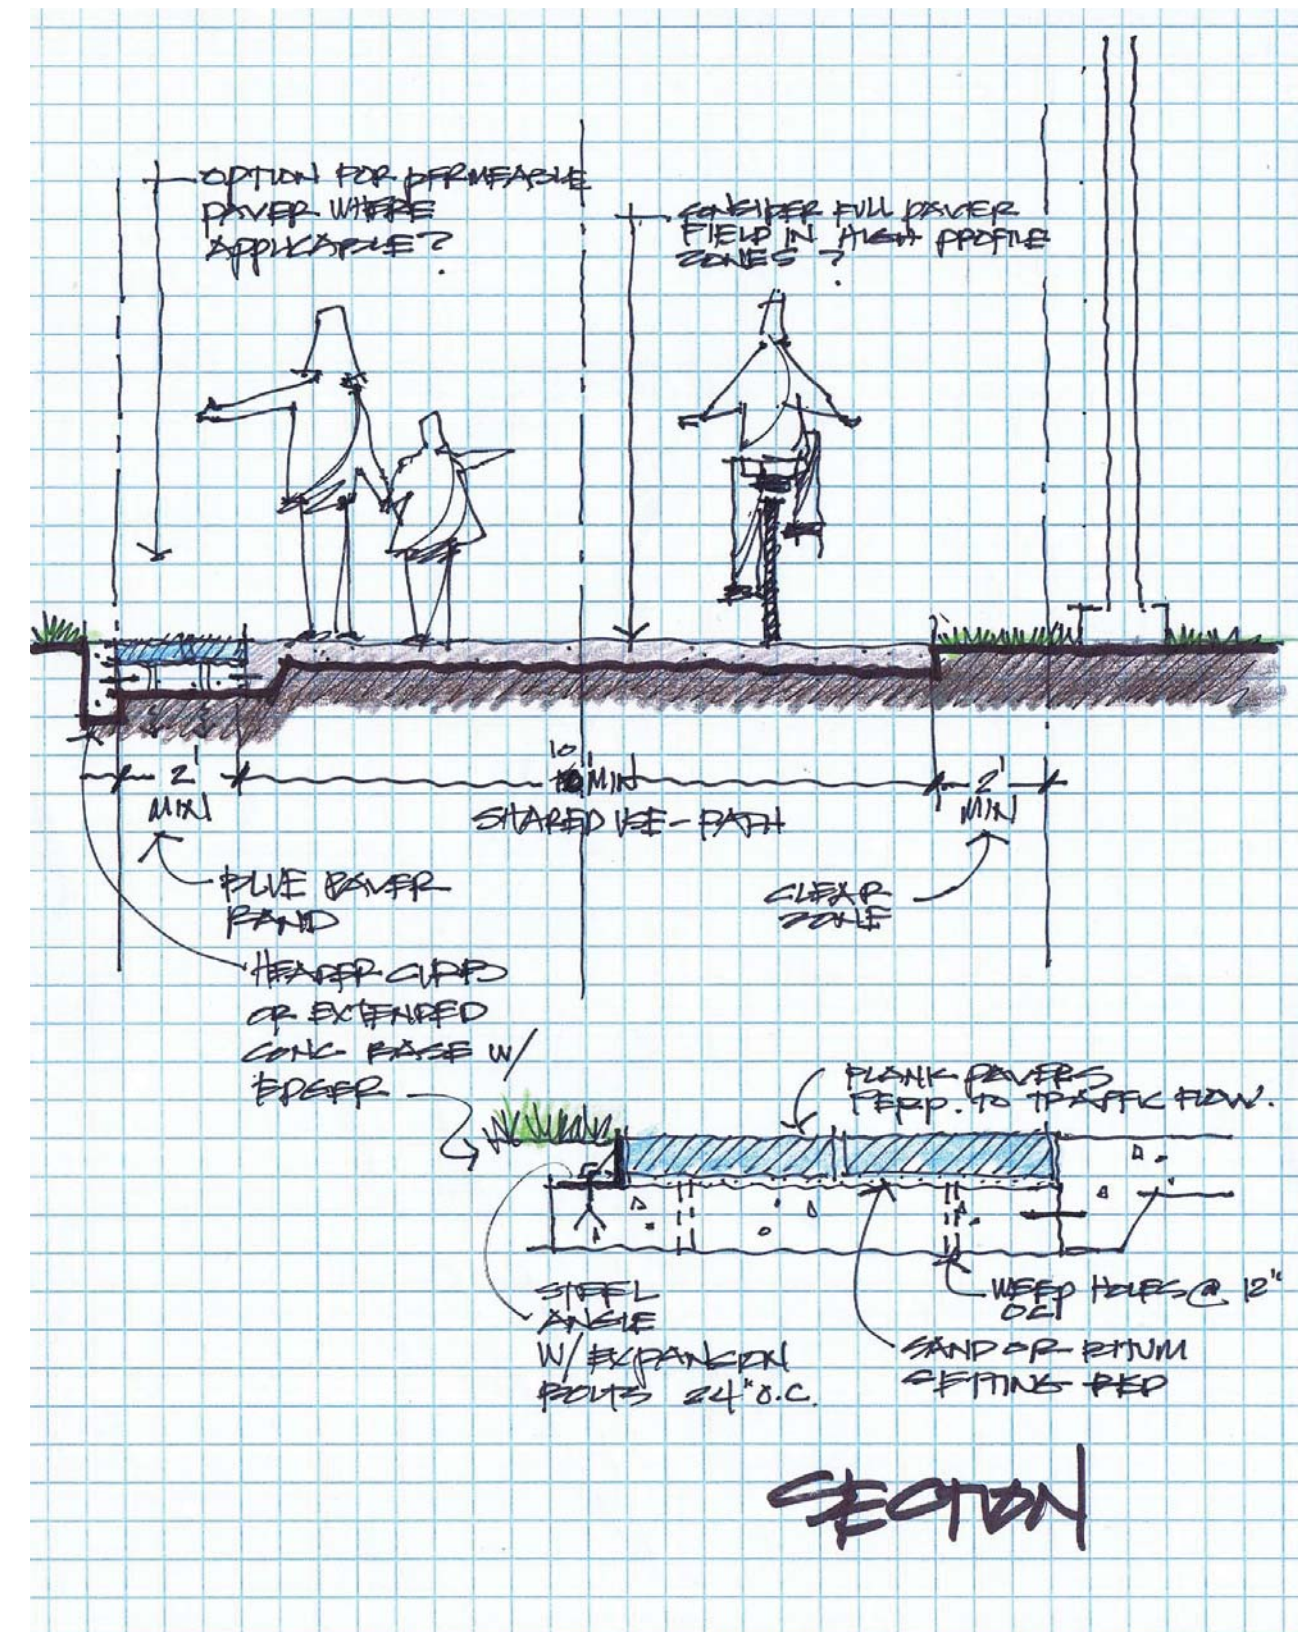 OPTION FOR PERMEABLE
PAVER WHERE
APPLICABLE?
CONSIDER FULL PAVER
FIELD IN HIGH PROFILE
ZONES?
2'
MIN
10'
MIN
SHARED USE-PATH
2'
MIN
BLUE PAVER
BAND
CLEAR
ZONE
HEADER CURB
OR EXTENDED
CONC BASE W/
EDGER
PLANK PAVERS
PERP. TO TRAFFIC FLOW.
STEEL
ANGLE
W/ EXPANSION
BOLTS 24" O.C.
WEEP HOLES @ 12"
OC
SAND OR BITUM
SETTING BED
SECTION